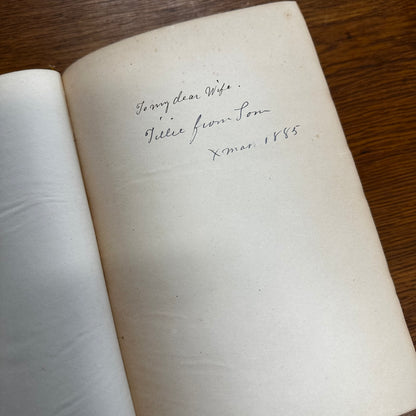 To my dear Wife.
Tillie from Tom
Xmas 1885